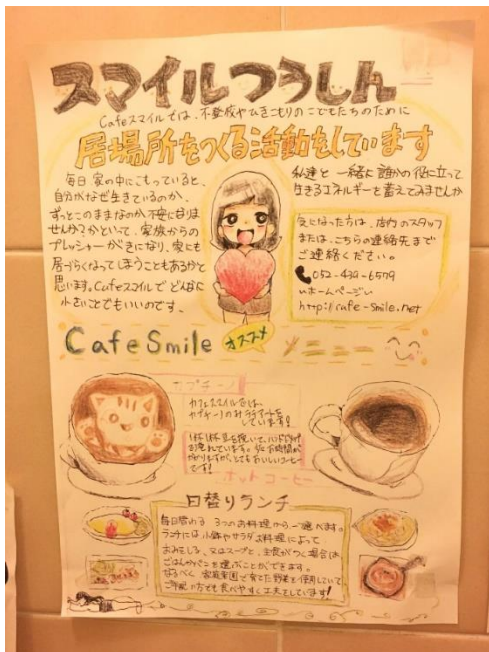 スマイルつうしん
Cafeスマイルでは、不登校やひきこもりのこどもたちのために
居場所をつくる活動をしています
毎日家の中にこもっていると、
自分がなぜ生きているのか、
ずっとこのままなのか、不安になりま
せんか?かといって、家族からの
プレッシャーが気になり、家にも
居づらくなってしまうこともあるかと
思います。Cafeスマイルでどんなに
小さいことでもいいのです、
私達と一緒に誰かの役に立って
生きるエネルギーを蓄えてみませんか
気になった方は、店内のスタッフ
または、こちらの連絡先まで
ご連絡ください。
052-439-6579
ホームページ
http://cafe-smile.net
Cafe Smile オススメ メニュー
カプチーノ
カフェスマイルでは、
カプチーノのみラテアートを
しています!
1杯1杯豆を挽いて、ハンドドリップ
で淹れています。少しお時間が
かかりますが、とてもおいしいコーヒー
です!
ホットコーヒー
日替りランチ
毎日替わる 3つのお料理から一つ選べます。
ランチには小鉢やサラダ、お料理によって
おみそしる、又はスープと、主食がつく場合は
ごはんかパンを選ぶことができます。
なるべく 家庭菜園で育てた野菜を使用していて
ご年配の方でも食べやすく工夫をしています!